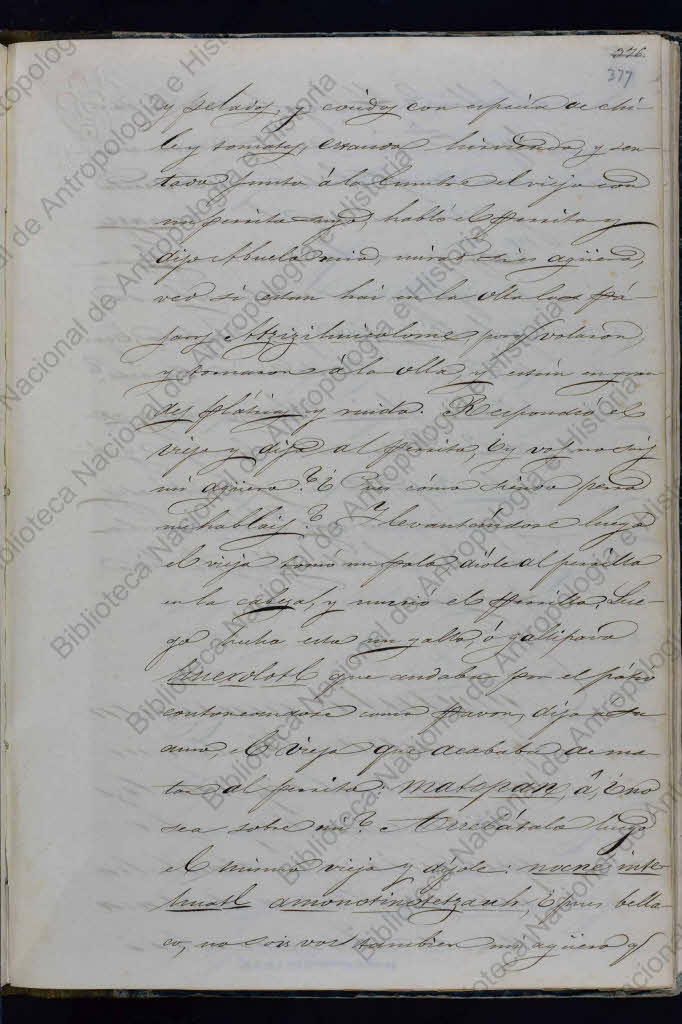 226.
377
y pelados, y cocidos con especia de chi-
le y tomates, estando hirviendo, y sen-
tado junto á la lumbre el viejo con
un perrito suyo, habló el perrito y
dijo Abuelo mio, mirad es agüero,
ved si estan hai en la olla los pá-
jaros Atzizicuilotme, porq̃ volaron,
y tornaron á la olla, y están en gran-
des pláticas y ruido. Respondió el
viejo y dijo al perrito, ¿y vos no sois
mi agüero? ¿Pues cómo siendo perro
me hablais? Y levantandose luego
el viejo tomó un palo, dióle al perrillo
en la cabeza, y murió el perrillo. Lue-
go hecho esto un gallo, ó gallipavo
huexolotl que andaba por el pátio
contoneandose como pavon, dijo á su
amo, el viejo que acababa de ma-
tar al perrito: matepan, â, ¿no
sea sobre mi? Arrebátalo luego
el mismo viejo y díjole: nocne inte-
huatl amonotinotetzauh, ¿pues bella-
co, no sois vos tambien mi agüero q̃
Biblioteca Nacional de Antropología e Historia